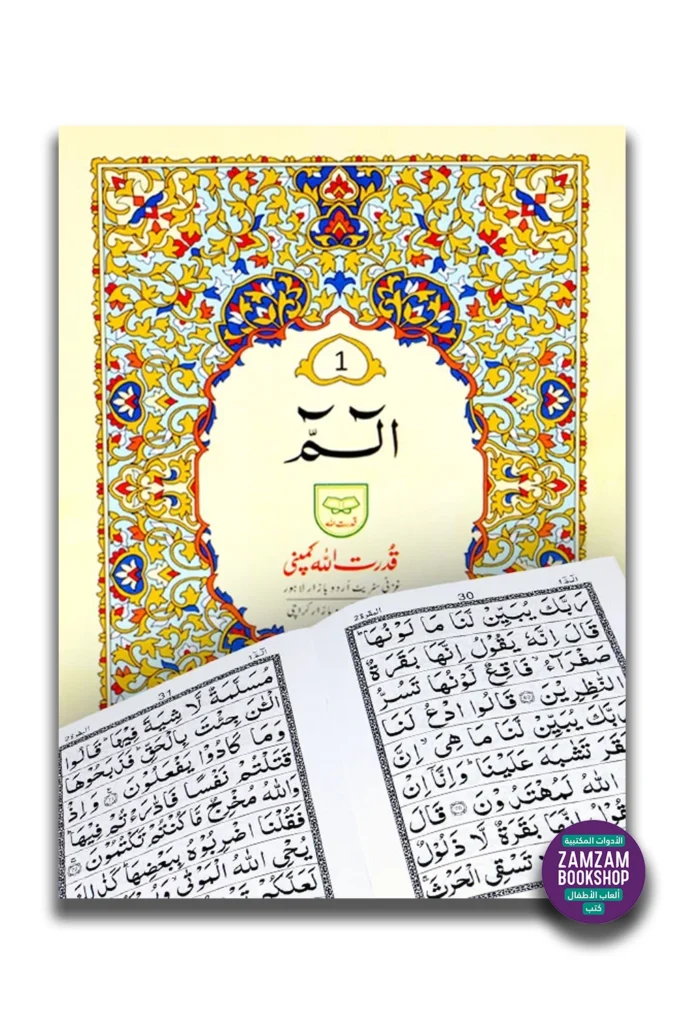 1
الٓمّٓ
قدرت اللہ
قُدرت اللہ کمپنی
غزنی سٹریٹ اُردو بازار لاہور
بازار کراچی
الٓمّٓ ١
30
البقرة ٢
رَبَّكَ يُبَيِّنْ لَّنَا مَا لَوْنُهَا ؕ
قَالَ اِنَّهٗ يَقُوْلُ اِنَّهَا بَقَرَةٌ
صَفْرَآءُ ۙ فَاقِعٌ لَّوْنُهَا تَسُرُّ
النّٰظِرِيْنَ ۝ قَالُوا ادْعُ لَنَا
رَبَّكَ يُبَيِّنْ لَّنَا مَا هِىَ ۙ اِنَّ
الْبَقَرَ تَشٰبَهَ عَلَيْنَا ؕ وَاِنَّاۤ اِنْ
اللّٰهُ لَمُهْتَدُوْنَ ۝ قَالَ
يَقُوْلُ اِنَّهَا بَقَرَةٌ لَّا ذَلُوْلٌ
لَا تَسْقِى الْحَرْثَ ۚ
الٓمّٓ ١
31
البقرة ٢
مُسَلَّمَةٌ لَّا شِيَةَ فِيْهَا ؕ قَالُوا
الْـٰٔنَ جِئْتَ بِالْحَقِّ ؕ فَذَبَحُوْهَا
وَمَا كَادُوْا يَفْعَلُوْنَ ۝ وَاِذْ
قَتَلْتُمْ نَفْسًا فَادّٰرَءْتُمْ فِيْهَا ؕ
وَاللّٰهُ مُخْرِجٌ مَّا كُنْتُمْ تَكْتُمُوْنَ ۝
فَقُلْنَا اضْرِبُوْهُ بِبَعْضِهَا ؕ كَذٰلِكَ
يُحْىِ اللّٰهُ الْمَوْتٰى ۙ
لَعَلَّكُمْ
الأدوات المكتبية
ZAMZAM
BOOKSHOP
ألعاب الأطفال
كتب